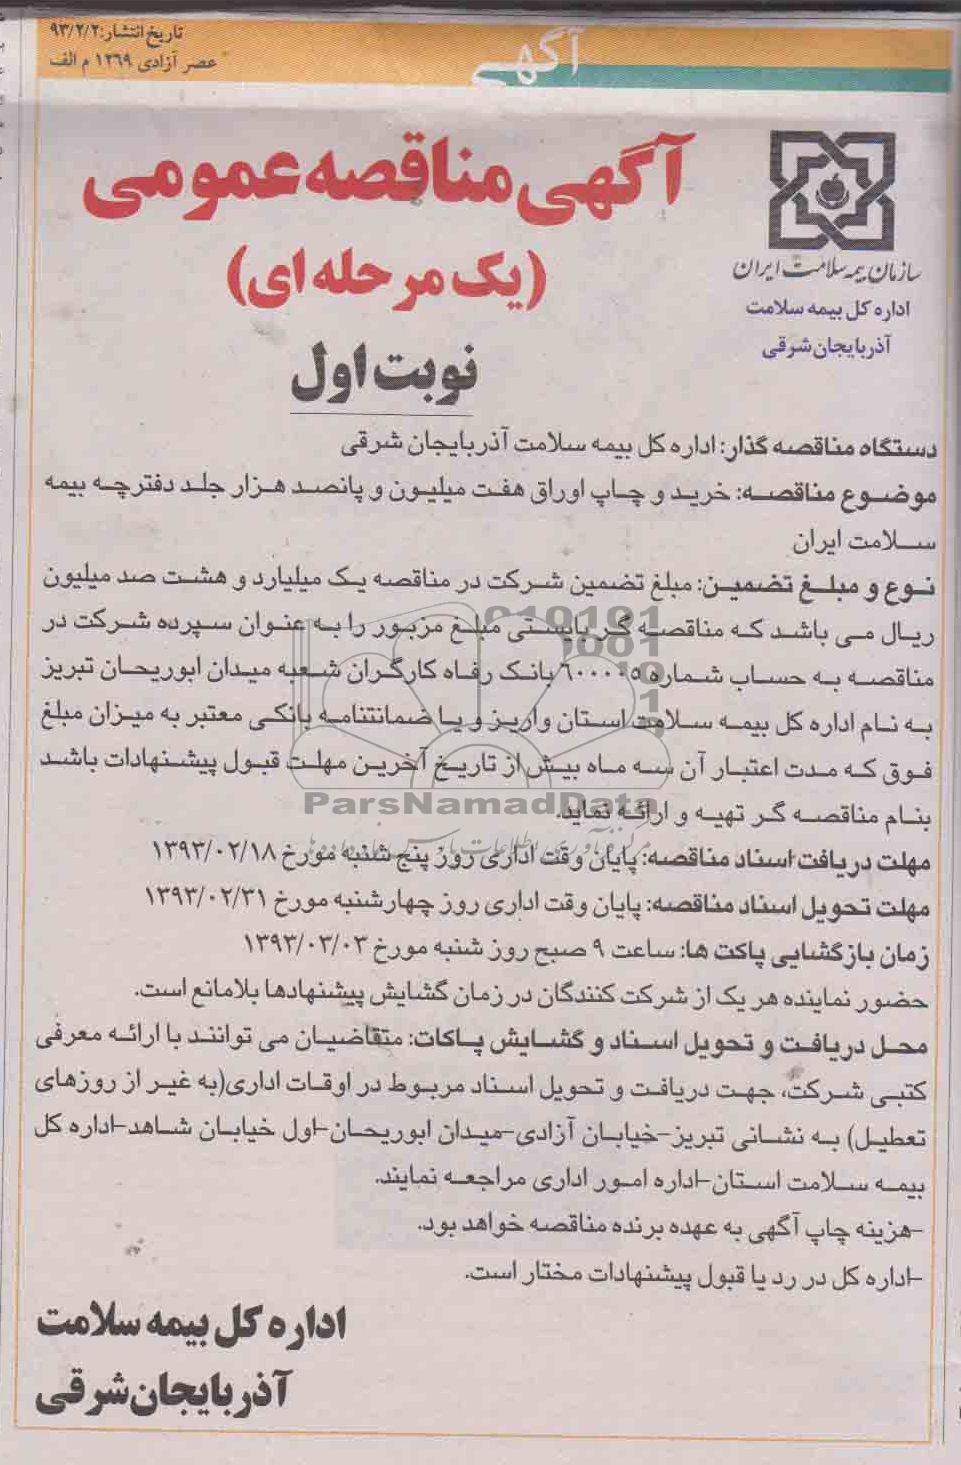 تاریخ انتشار: ۹۳/۲/۲
عصر آزادی ۱۲۶۹ م الف
آگهی
آگهی مناقصه عمومی
(یک مرحله ای)
نوبت اول
سازمان بیمه سلامت ایران
اداره کل بیمه سلامت
آذربایجان شرقی
دستگاه مناقصه گذار: اداره کل بیمه سلامت آذربایجان شرقی
موضوع مناقصه: خرید و چاپ اوراق هفت میلیون و پانصد هزار جلد دفترچه بیمه
سلامت ایران
نوع و مبلغ تضمین: مبلغ تضمین شرکت در مناقصه یک میلیارد و هشت صد میلیون
ریال می باشد که مناقصه گر بایستی مبلغ مزبور را به عنوان سپرده شرکت در
مناقصه به حساب شماره ۶۰۰۰۰۵ بانک رفاه کارگران شعبه میدان ابوریحان تبریز
به نام اداره کل بیمه سلامت استان واریز و یا ضمانتنامه بانکی معتبر به میزان مبلغ
فوق که مدت اعتبار آن سه ماه بیش از تاریخ آخرین مهلت قبول پیشنهادات باشد
بنام مناقصه گر تهیه و ارائه نماید.
ParsNamadData
مهلت دریافت اسناد مناقصه: پایان وقت اداری روز پنج شنبه مورخ ۱۳۹۳/۰۲/۱۸
مهلت تحویل اسناد مناقصه: پایان وقت اداری روز چهارشنبه مورخ ۱۳۹۳/۰۲/۳۱
زمان بازگشایی پاکت ها: ساعت ۹ صبح روز شنبه مورخ ۱۳۹۳/۰۳/۰۳
حضور نماینده هر یک از شرکت کنندگان در زمان گشایش پیشنهادها بلامانع است.
محل دریافت و تحویل اسناد و گشایش پاکات: متقاضیان می توانند با ارائه معرفی
کتبی شرکت، جهت دریافت و تحویل اسناد مربوط در اوقات اداری(به غیر از روزهای
تعطیل) به نشانی تبریز-خیابان آزادی-میدان ابوریحان-اول خیابان شاهد-اداره کل
بیمه سلامت استان-اداره امور اداری مراجعه نمایند.
-هزینه چاپ آگهی به عهده برنده مناقصه خواهد بود.
-اداره کل در رد یا قبول پیشنهادات مختار است.
اداره کل بیمه سلامت
آذربایجان شرقی